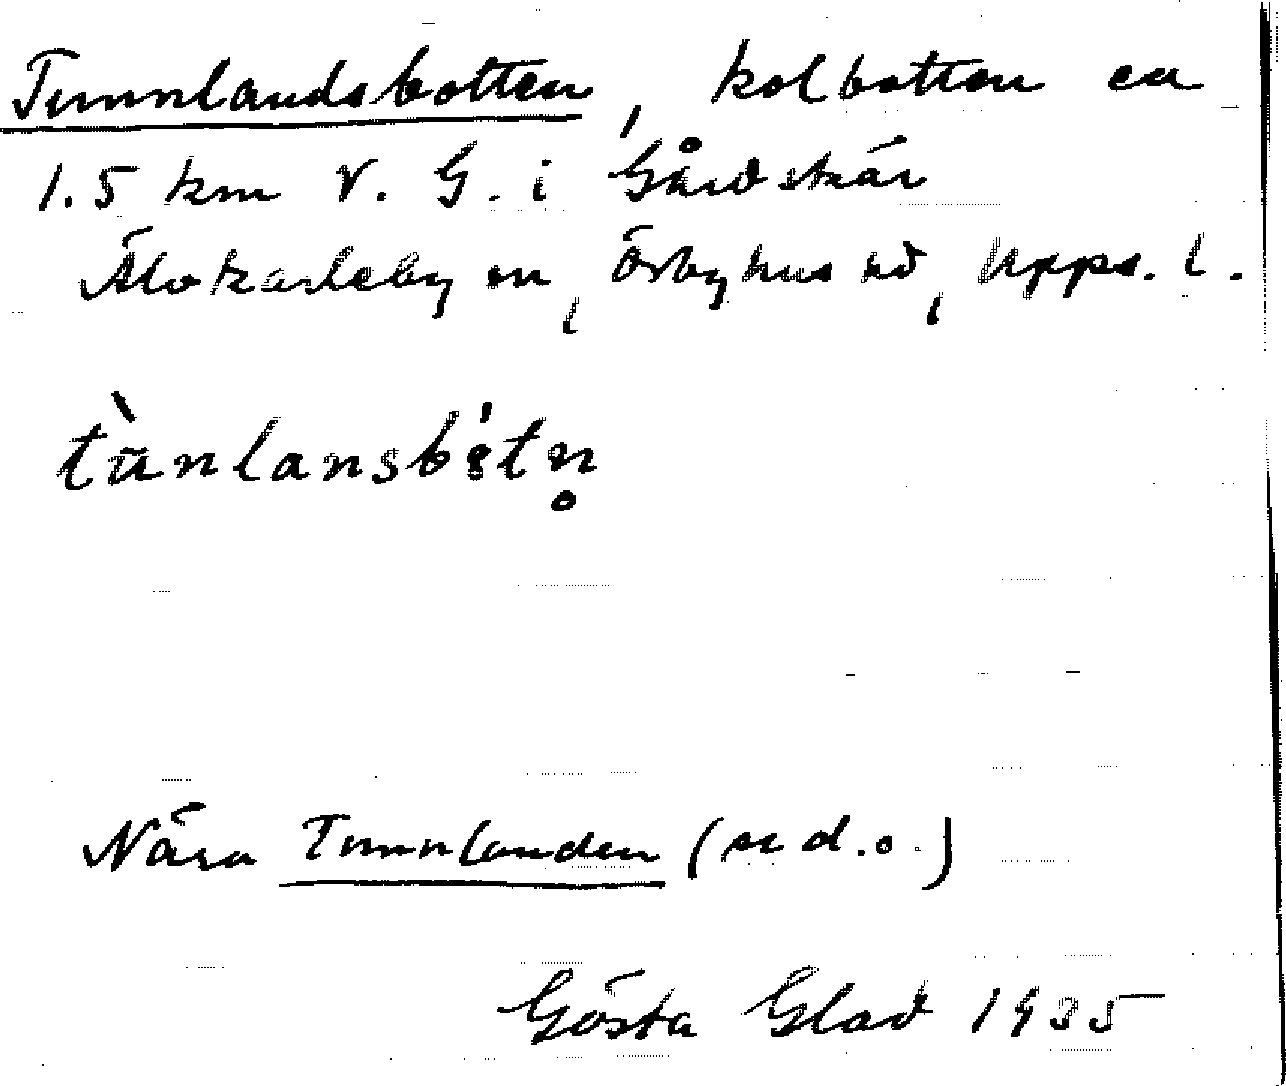 Tunnlandsbotten, kolbotten ca
1.5 km V. G. i Gårdskär
Älvkarleby sn, Örbyhus hd, Upps. l.
tùnlansbótn̥
Nära Tunnlanden (se d.o.)
Gösta Glad 1935